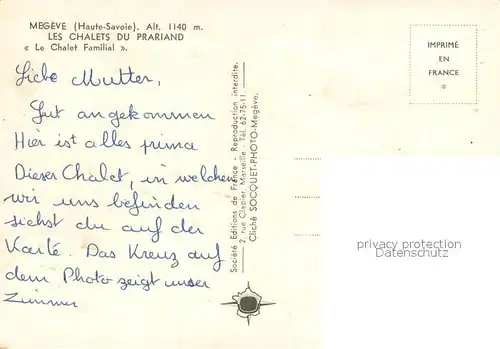 MEGÈVE (Haute-Savoie). Alt. 1140 m.
LES CHALETS DU PRARIAND
« Le Chalet Familial ».
Liebe Mutter,
Gut angekommen
Hier ist alles prima
Dieser Chalet, in welchen
wir uns befinden
siehst du auf der
Karte. Das Kreuz auf
dem Photo zeigt unser
Zimmer
Société Editions de France - Reproduction interdite.
2, rue Clapier, Marseille - Tél. 62-75-11.
Cliché SOCQUET-PHOTO-Megève.
IMPRIMÉ
EN
FRANCE
*
privacy protection
Datenschutz